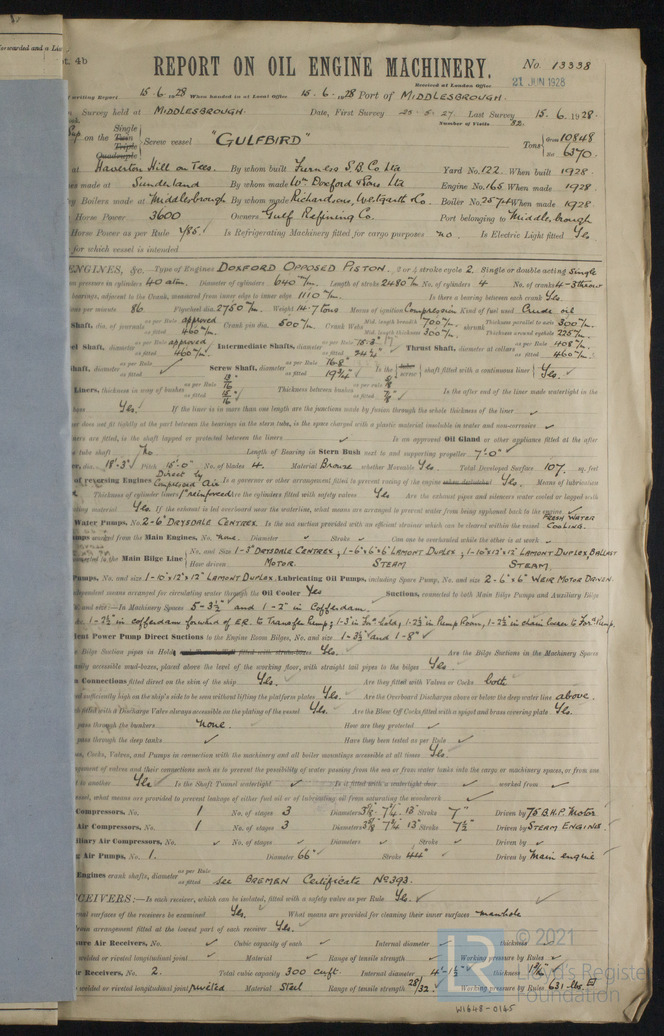 forwarded and a
pt. 4b
REPORT ON OIL ENGINE MACHINERY.
No. 13338
21 JUN 1928
Received at London Office
of writing Report 15.6.1928 When handed in at Local Office 15.6.1928 Port of MIDDLESBROUGH.
Survey held at MIDDLESBROUGH Date, First Survey 27 Last Survey 15.6.1928.
Number of Visits 82
on the Single Twin Triple Quadruple Screw vessel "GULFBIRD" Tons Gross 10848 Net 6370.
at Haverton Hill on Tees. By whom built Furness S.B. Co Ltd Yard No. 122. When built 1928.
made at Sunderland By whom made Wm Doxford & Sons Ltd Engine No. 165 When made 1928
Boilers made at Middlesbrough By whom made Richardsons, Westgarth & Co. Boiler No. When made 1928
Horse Power 3600 Owners Gulf Refining Co. Port belonging to Middlesbrough
Horse Power as per Rule 785. Is Refrigerating Machinery fitted for cargo purposes no. Is Electric Light fitted Yes.
for which vessel is intended
ENGINES, &c.—Type of Engines DOXFORD OPPOSED PISTON. 2 or 4 stroke cycle 2. Single or double acting Single
pressure in cylinders 40 atm. Diameter of cylinders 640 m/m. Length of stroke 2480 m/m No. of cylinders 4 No. of cranks 4-3 throw
bearings, adjacent to the Crank, measured from inner edge to inner edge 1110 m/m. Is there a bearing between each crank Yes
per minute 86 Flywheel dia. 2750 m/m. Weight 14.7 tons Means of ignition Compression Kind of fuel used Crude oil
Shaft, dia. of journals as per Rule approved as fitted 460 m/m. Crank pin dia. 500 m/m. Crank Webs Mid. length breadth 700 m/m. Mid. length thickness 300 m/m. shrunk Thickness parallel to axis 300 m/m. Thickness around eyehole 225 m/m.
Shaft, diameter as per Rule approved as fitted 460 m/m Intermediate Shafts, diameter as per Rule 15.3" as fitted Thrust Shaft, diameter at collars as per Rule 408 m/m. as fitted 460 m/m.
Shaft, diameter as per Rule as fitted Screw Shaft, diameter as per Rule 16.8" as fitted 19 3/4" Is the screw shaft fitted with a continuous liner Yes.
Liners, thickness in way of bushes as per Rule as fitted Thickness between bushes as per Rule as fitted Is the after end of the liner made watertight in the
Yes. If the liner is in more than one length are the junctions made by fusion through the whole thickness of the liner
does not fit tightly at the part between the bearings in the stern tube, is the space charged with a plastic material insoluble in water and non-corrosive
are fitted, is the shaft lapped or protected between the liners Is an approved Oil Gland or other appliance fitted at the after
tube shaft no. Length of Bearing in Stern Bush next to and supporting propeller 7'.0"
dia. 18'.3" Pitch 15'.0" No. of blades 4. Material Bronze whether Moveable Yes. Total Developed Surface 107. sq. feet
of reversing Engines Direct by Compressed Air Is a governor or other arrangement fitted to prevent racing of the engine when declutched Yes. Means of lubrication
Thickness of cylinder liners 1" reinforced Are the cylinders fitted with safety valves Yes Are the exhaust pipes and silencers water cooled or lagged with
material Yes. If the exhaust is led overboard near the waterline, what means are arranged to prevent water from being syphoned back to the engine FRESH WATER COOLING.
Water Pumps, No. 2-6" DRYSDALE CENTREX. Is the sea suction provided with an efficient strainer which can be cleared within the vessel
worked from the Main Engines, No. none. Diameter Stroke Can one be overhauled while the other is at work
connected to the Main Bilge Line No. and Size 1-3" DRYSDALE CENTREX, 1-6"x6"x6" LAMONT DUPLEX, 1-10"x12"x12" LAMONT DUPLEX, BALLAST
How driven MOTOR. STEAM STEAM.
Pumps, No. and size 1-10"x12"x12" LAMONT DUPLEX. Lubricating Oil Pumps, including Spare Pump, No. and size 2-6"x6" WEIR MOTOR DRIVEN.
independent means arranged for circulating water through the Oil Cooler Yes Suctions, connected to both Main Bilge Pumps and Auxiliary Bilge
and size:—In Machinery Spaces 5-3 1/2" and 1-2" in Cofferdam.
1-2 1/2" in cofferdam forward of E.R. to Transfer Pump; 1-3" in For'd Hold, 1-2 1/2" in Pump Room, 1-2 1/2" in chain locker to For'd Pump.
Power Pump Direct Suctions to the Engine Room Bilges, No. and size. 1-3 1/2" and 1-8"
Bilge Suction pipes in Holds Yes. Are the Bilge Suctions in the Machinery Spaces
easily accessible mud-boxes, placed above the level of the working floor, with straight tail pipes to the bilges Yes.
Connections fitted direct on the skin of the ship Yes. Are they fitted with Valves or Cocks both
sufficiently high on the ship's side to be seen without lifting the platform plates Yes. Are the Overboard Discharges above or below the deep water line above.
fitted with a Discharge Valve always accessible on the plating of the vessel Yes. Are the Blow Off Cocks fitted with a spigot and brass covering plate Yes.
pass through the bunkers none. How are they protected
pass through the deep tanks Have they been tested as per Rule
Cocks, Valves, and Pumps in connection with the machinery and all boiler mountings accessible at all times Yes.
arrangement of valves and their connections such as to prevent the possibility of water passing from the sea or from water tanks into the cargo or machinery spaces, or from one
to another Yes Is the Shaft Tunnel watertight Is it fitted with a watertight door worked from
vessel, what means are provided to prevent leakage of either fuel oil or of lubricating oil from saturating the woodwork
Compressors, No. 1 No. of stages 3 Diameters Stroke 7" Driven by 75 B.H.P. Motor
Air Compressors, No. 1 No. of stages 3 Diameters Stroke 7 1/2" Driven by STEAM ENGINE.
Air Compressors, No. No. of stages Diameters Stroke Driven by
Air Pumps, No. 1. Diameter 66" Stroke 44" Driven by Main engine
Engines crank shafts, diameter as per Rule as fitted see BREMEN Certificate No 393.
RECEIVERS:—Is each receiver, which can be isolated, fitted with a safety valve as per Rule Yes.
internal surfaces of the receivers be examined Yes. What means are provided for cleaning their inner surfaces manhole
drain arrangement fitted at the lowest part of each receiver Yes.
Air Receivers, No. Cubic capacity of each Internal diameter thickness
welded or riveted longitudinal joint Material Range of tensile strength Working pressure by Rules
Air Receivers, No. 2. Total cubic capacity 300 cuft. Internal diameter 4'-1 1/2" thickness
welded or riveted longitudinal joint riveted Material Steel Range of tensile strength 28/32. Working pressure by Rules 631 lbs.
© 2021
LR
Lloyd's Register
Foundation
W1648-0165